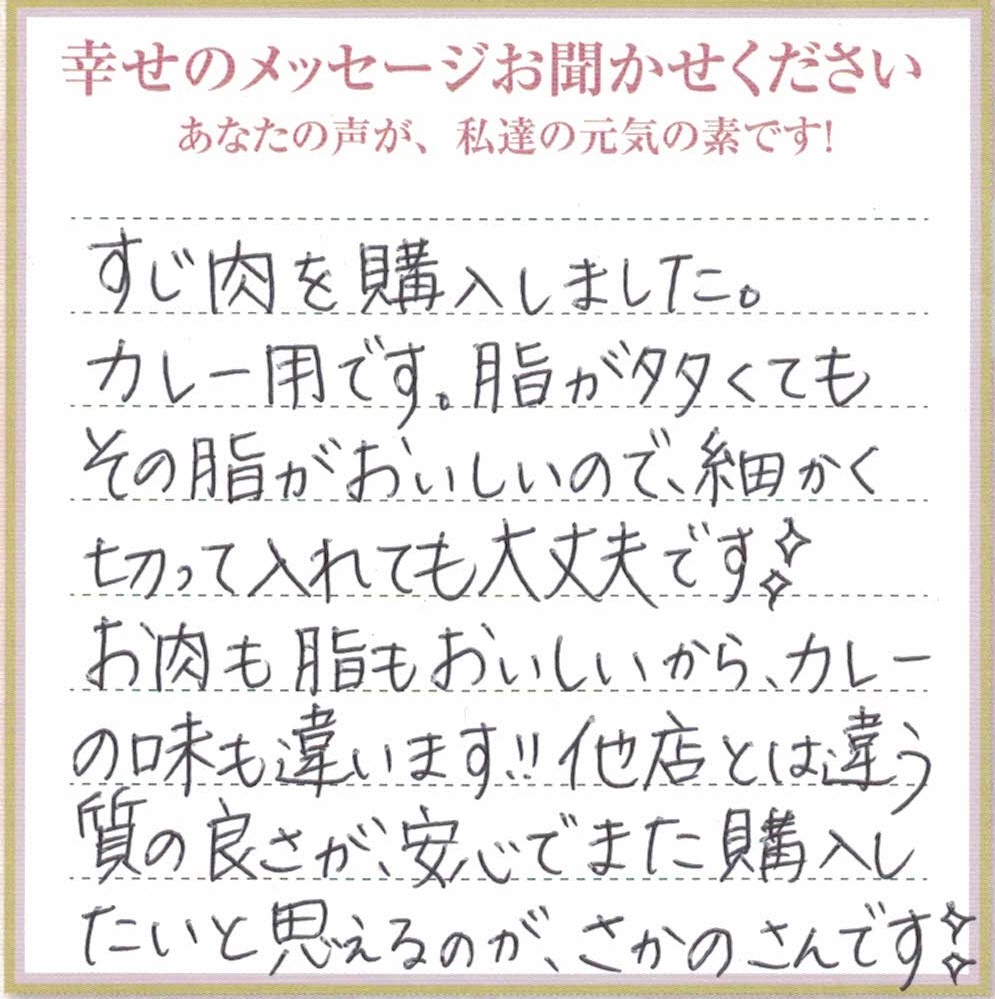 幸せのメッセージお聞かせください
あなたの声が、私達の元気の素です!
すじ肉を購入しました。
カレー用です。脂が多くても
その脂がおいしいので、細かく
切って入れても大丈夫です
お肉も脂もおいしいから、カレー
の味も違います!!他店とは違う
質の良さが、安心でまた購入し
たいと思えるのが、さかのさんです